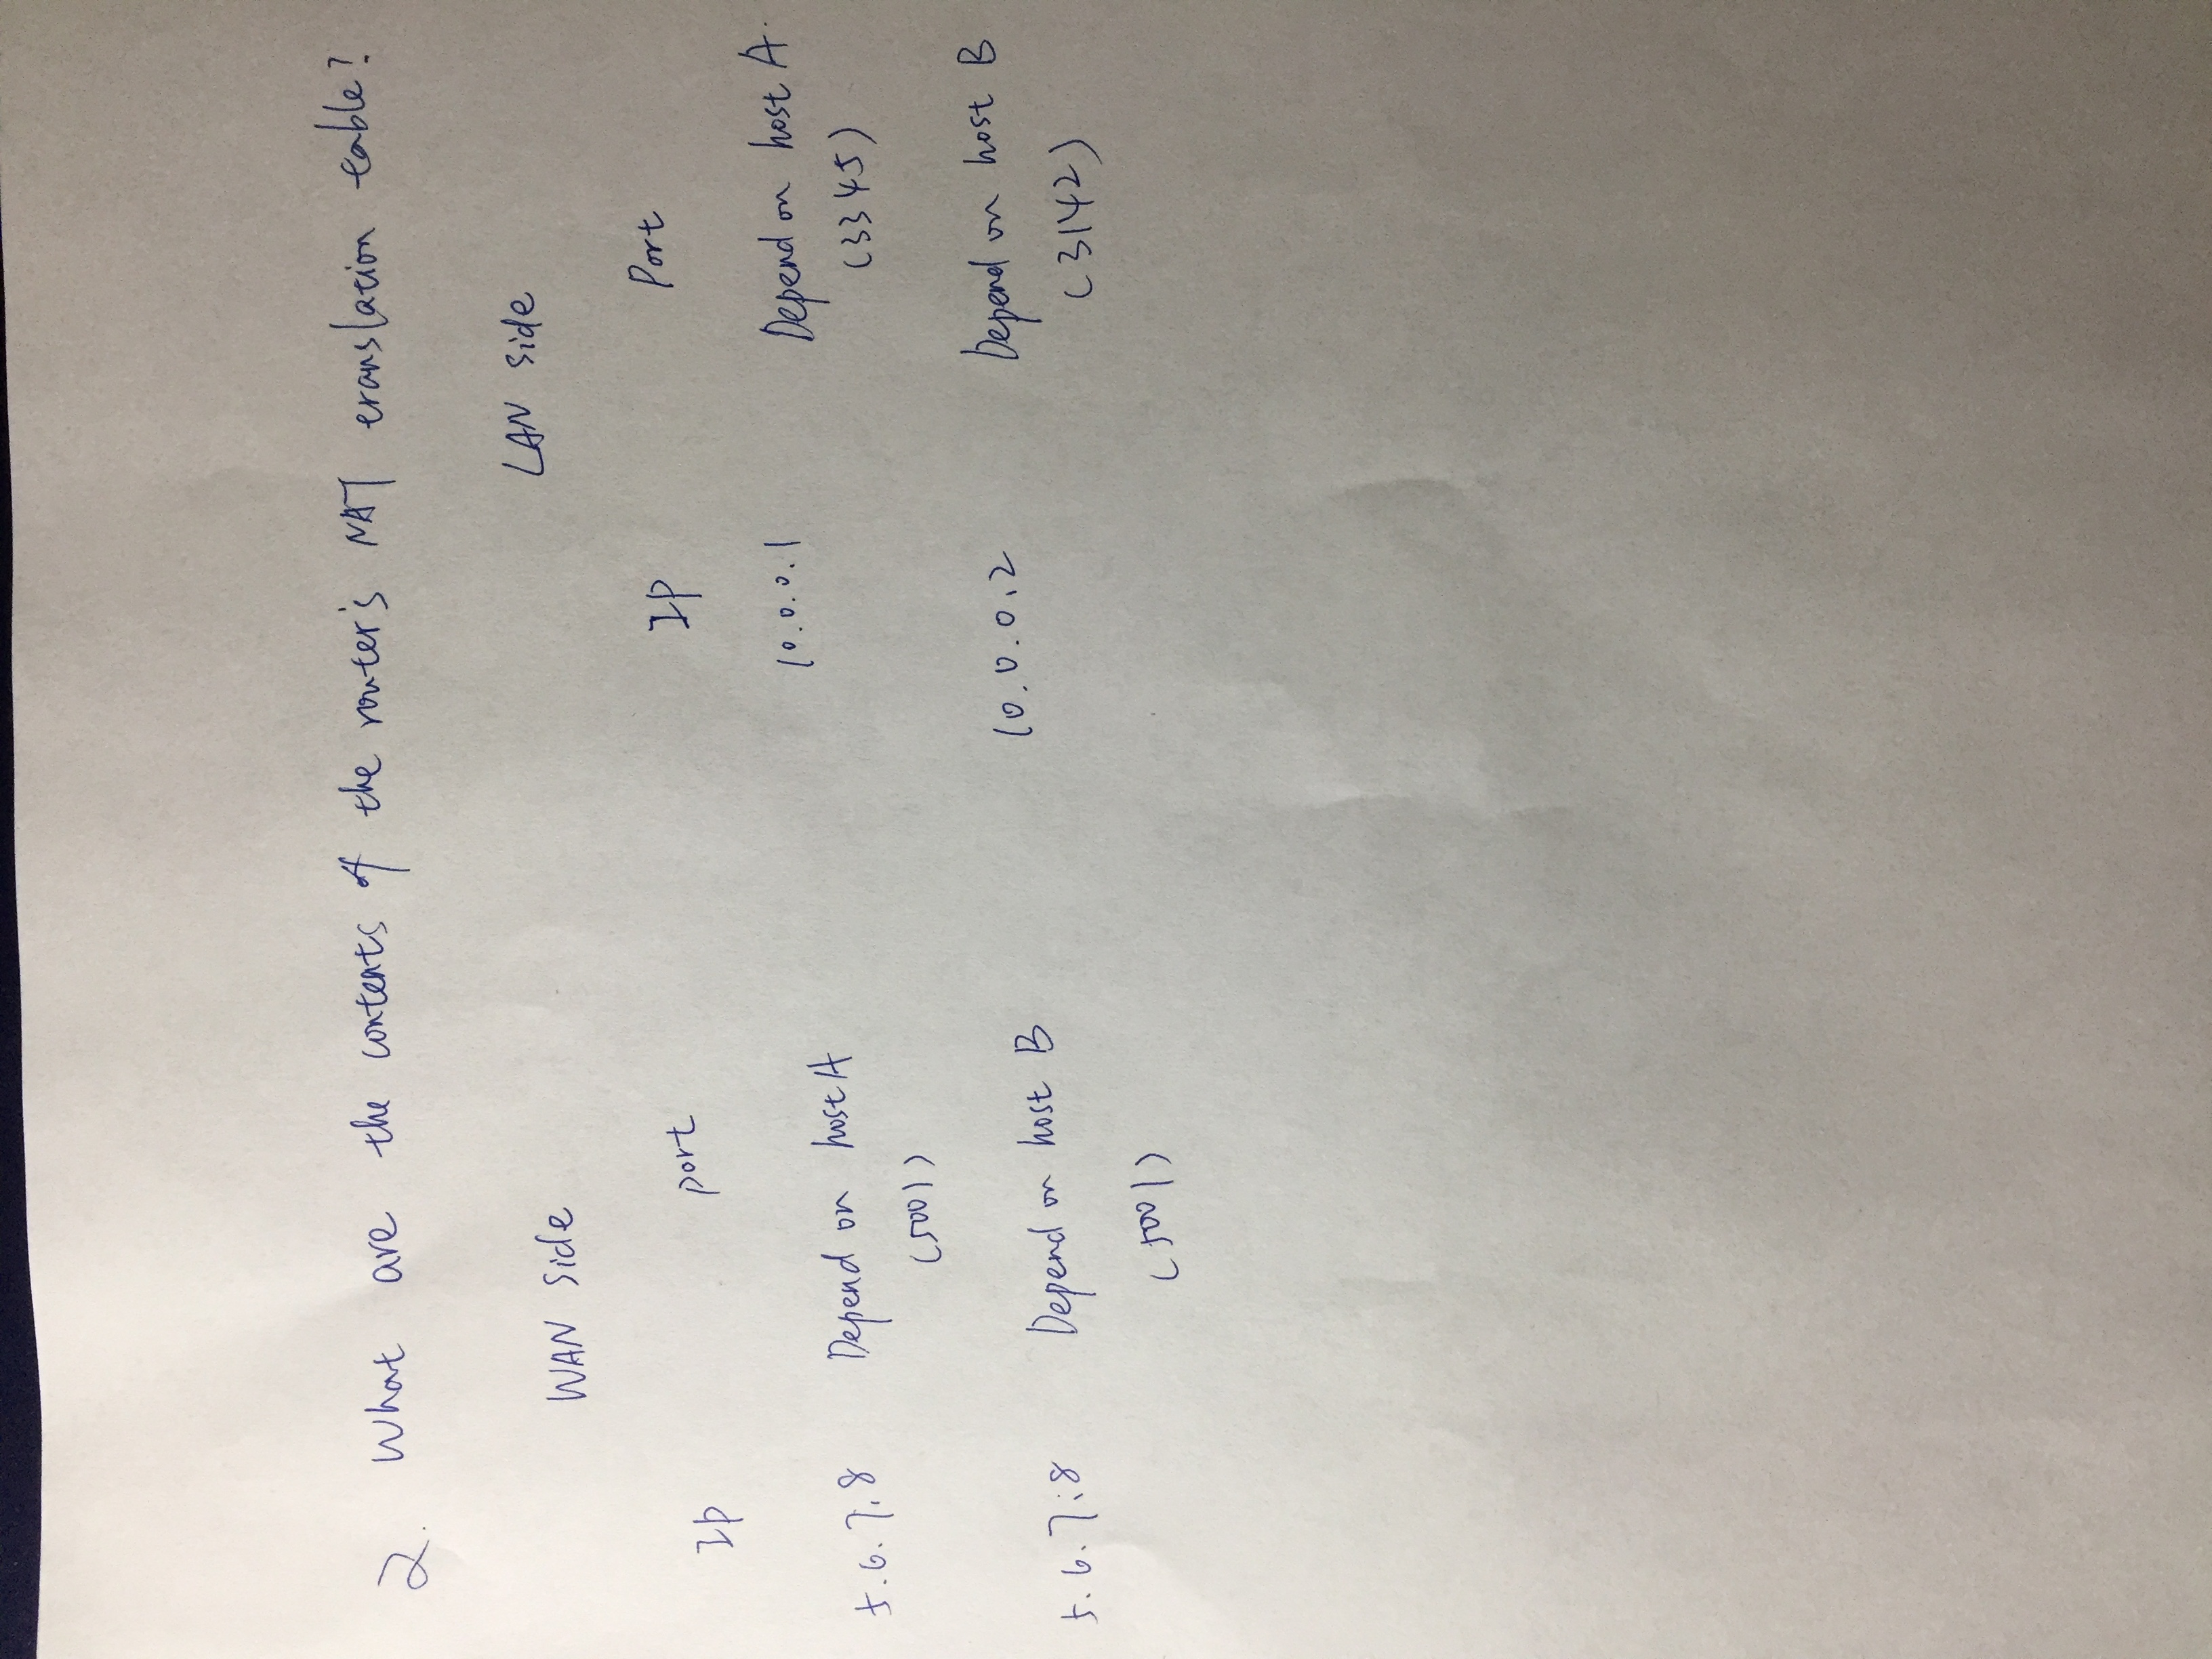 2. What are the contents of the router's NAT translation table?
WAN side LAN side
Ip port IP Port
5.6.7.8 Depend on host A 10.0.0.1 Depend on host A.
(5001) (3345)
5.6.7.8 Depend on host B 10.0.0.2 Depend on host B
(5001) (3142)